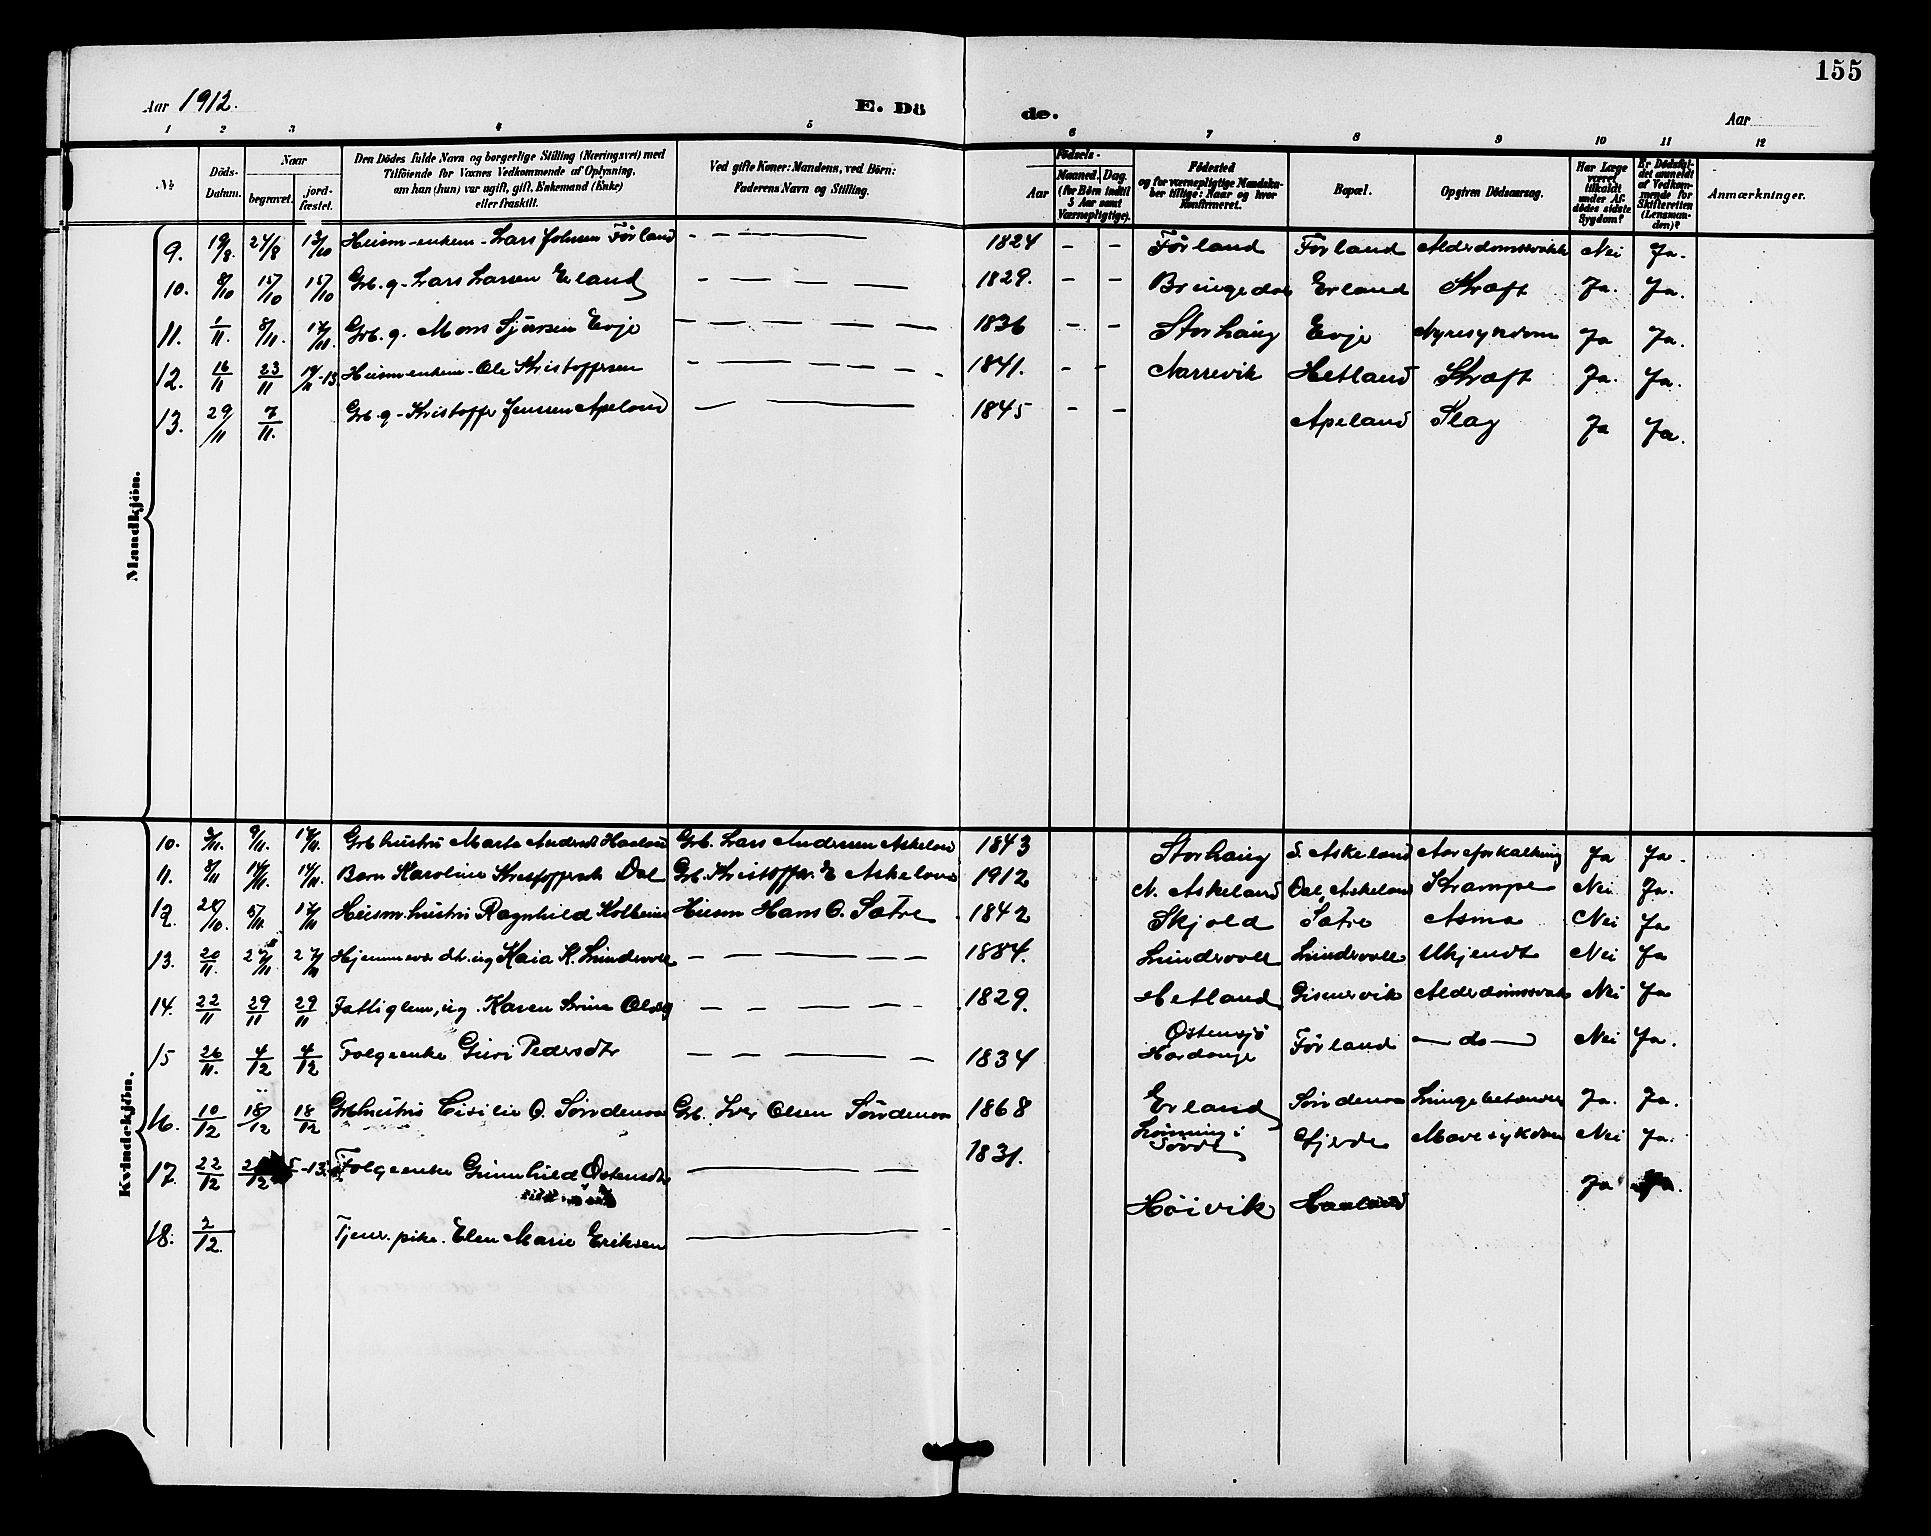 155
Aar 1912. E. Dö de. Aar
1 2 3 4 5 6 7 8 9 10 11 12
№ Döds-Datum. Naar begravet. jord-fæstet. Den Dödes fulde Navn og borgerlige Stilling (Næringsvei) med Tilföiende for Voxnes Vedkommende af Oplysning, om han (hun) var ugift, gift, Enkemand (Enke) eller fraskilt. Ved gifte Koner: Mandens, ved Börn: Faderens Navn og Stilling. Födsels- Aar Maaned. Dag. (for Börn indtil 5 Aar samt Værnepligtige). Födested og for værnepligtige Mandskaber tillige: Naar og hvor konfirmeret. Bopæl. Opgiven Dödsaarsag. Har Læge været tilkaldt under Afdödes sidste Sygdom? Er Dödsfaldet anmeldt af Vedkommende for Skifteretten (Lensmanden)? Anmærkninger.
Mandkjön.
9. 19/8. 24/8 13/10 Husm-enkem- Lars Johnsen Førland - - - 1824 - - Førland Førland Alderdomssvakh Nei Ja.
10. 8/10 15/10 15/10 Grb. g. Lars Larsen Erland - - - 1829. - - Bringedal Erland Kræft Ja. Ja.
11. 1/11. 8/11. 17/11. Grb. g. Mons Sjursen Evje - - - 1836 - - Storhaug Evje Nyresykdom Ja Ja.
12. 16/11 23/11 -13. Husm-enkem- Ole Kristoffersen - - - 1841. - - Narrevik Hetland Kræft Ja. Ja.
13. 29/11 7/11. Grb. g- Kristoffer Jensen Apeland - - - 1845 - - Apeland Slag Ja Ja.
Kvindekjön.
10. 3/11. 9/11. 17/11. Grb hustru Marta Andersd Grb. Lars Andersen Askeland 1843 Storhaug S. Askeland Aareforkalkning Ja Ja.
11. 8/11 14/11. 14/11. Barn Karoline Kristoffersdt Dal Grb. Kristoffer E Askeland 1912 N. Askeland Dal, Askeland Krampe Nei Ja.
12. 28/10. 5/11. 17/11 Husm. hustru Ragnhild Kolbeins Husm Hans O. Sætre 1842 Skjold Sætre Asma Nei Ja
13. 20/11. 27/11 27/11 Hjemmevær. dt. ug Kaia K. Lundevoll - - - 1884. Lundevoll Lundevoll Ukjendt Nei Ja
14. 22/11 29/11 29/11 Fattiglem, ug. Karen Olsdtr - - - 1829. Hetland Gisnervik Alderdomssvakh Nei Ja
15 26/11. 4/12 4/12 Folgeenke Guri Pedersdtr - - - 1834 Ostensjö Hardange Førland - do - Nei Ja.
16. 10/12 18/12 18/12 Grb hustru Cisilie O. Søndenaa Grb. Iver Olsen Søndenaa 1868 Erland Søndenaa Lungebetændel Ja. Ja.
17. 22/12 -13. Folgeenke Gunnhild Ostensdtr - - 1831. Lønning i Fjerde Mavesykdom Nei Ja.
18. 2/12. Tjen. pike. Elen Marie Eriksen - Høivik Haaland Ja Ja.